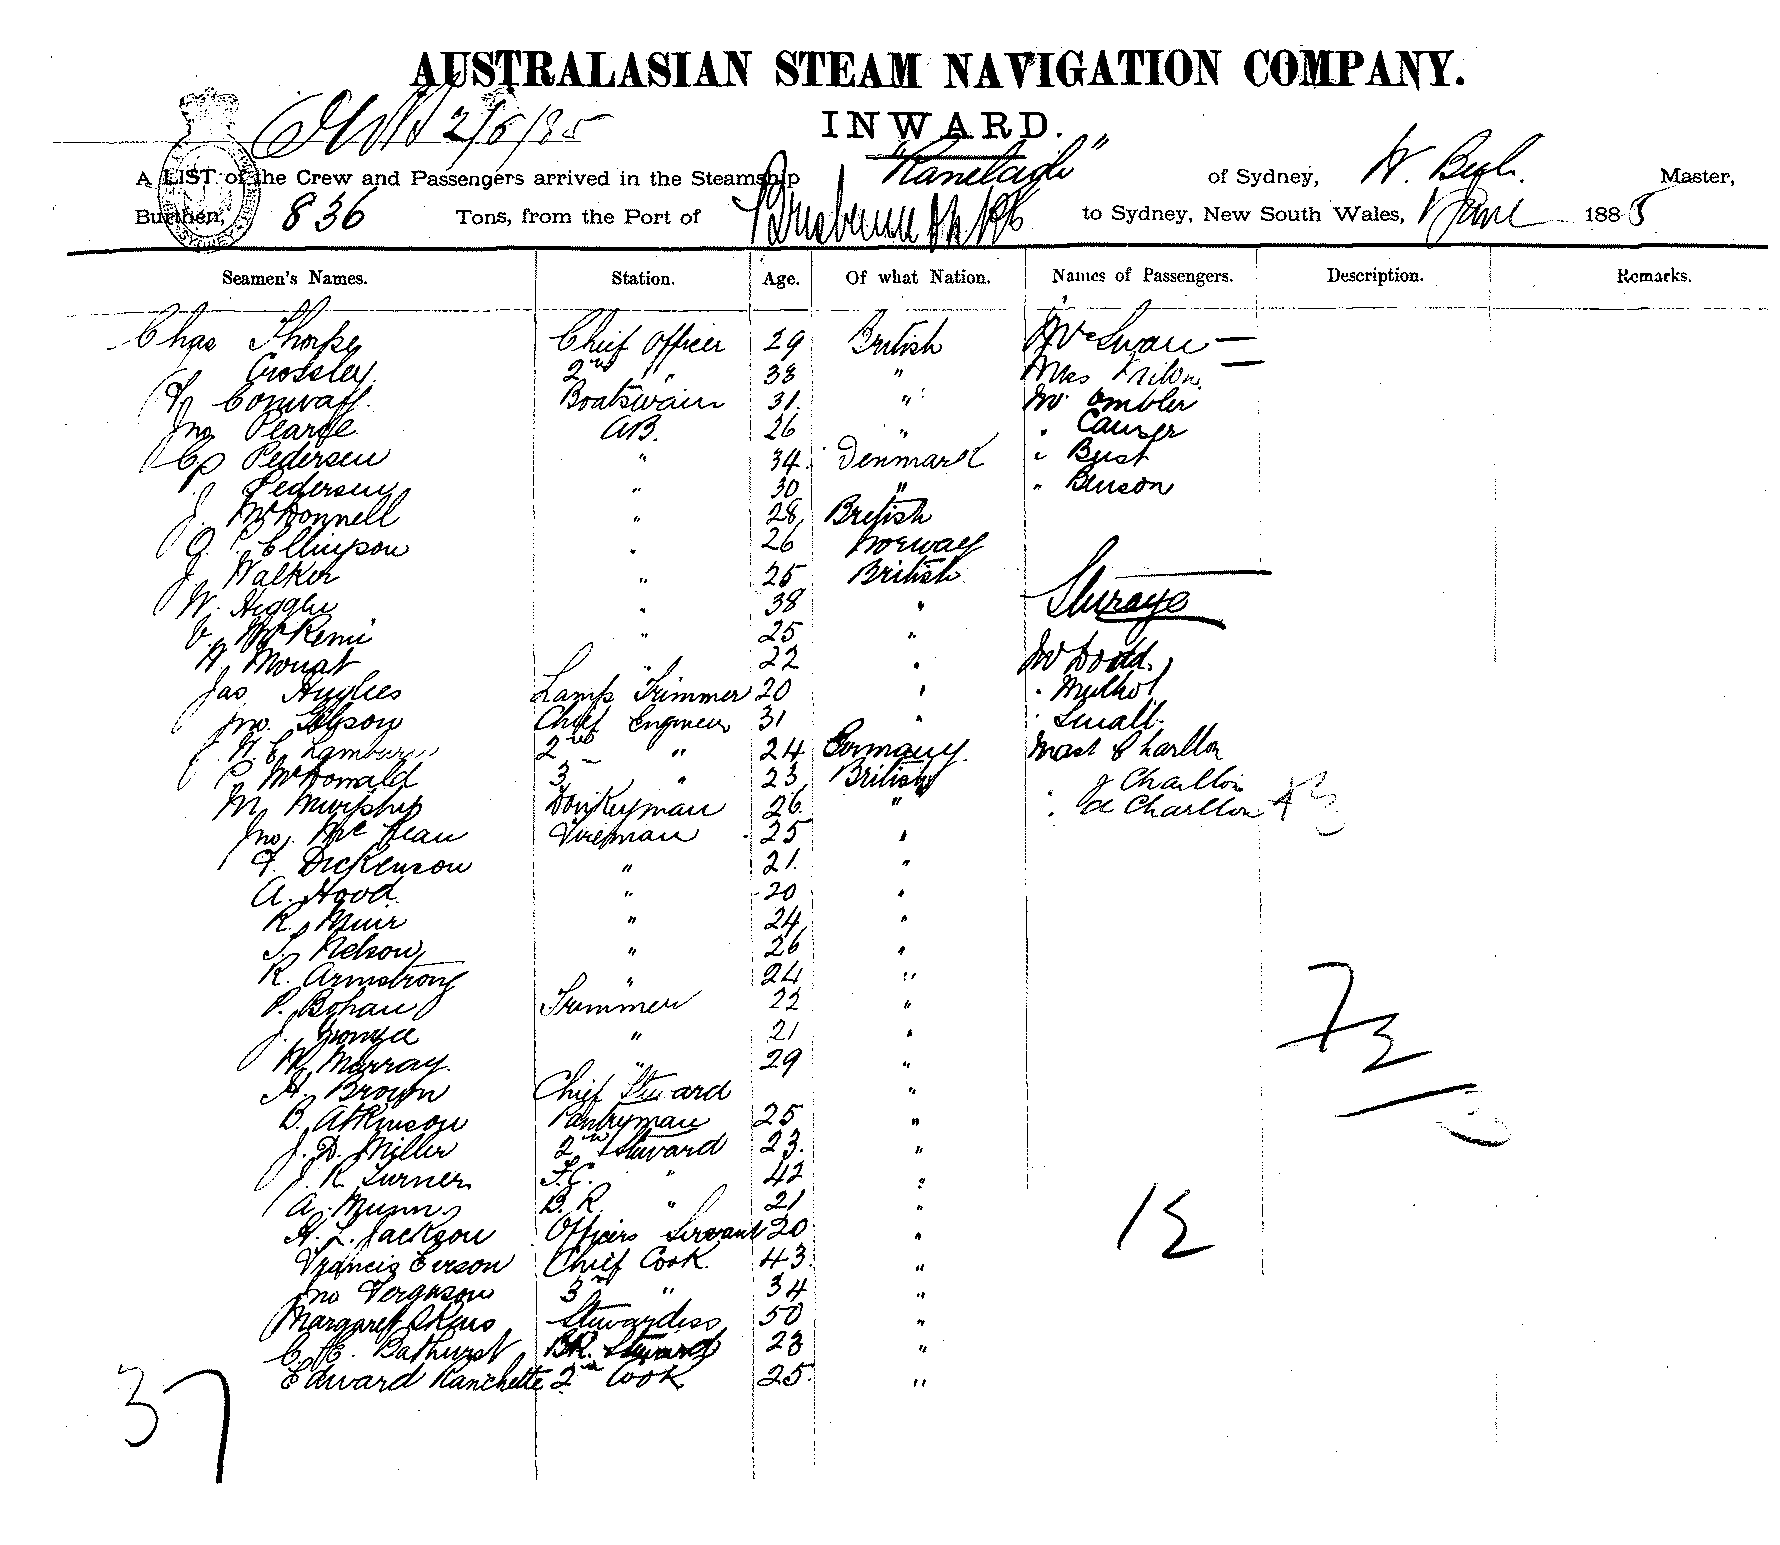 AUSTRALASIAN STEAM NAVIGATION COMPANY.
2/6/85
INWARD.
A LIST of the Crew and Passengers arrived in the Steamship "Ranelagh" of Sydney, W. Master,
Burthen, 836 Tons, from the Port of Brisbane to Sydney, New South Wales, 1 June 1885
Seamen's Names. Station. Age. Of what Nation. Names of Passengers. Description. Remarks.
Chas Thorpe Chief Officer 29 British Mr Swan
Crossley 2nd " 38 "
Boatswain 31 " Mr Ombler
Jno Pearce AB. 26 " "
Pedersen " 34 Denmark " Bust
J. Pedersen " 30 " " Benson
J. McDonnell " 28 British
Ellingson " 26 Norway
J. Walker " 25 British
W. " 38 " Steerage
" 25 "
Mouat " 22 " Mr Dodd
Jas Hughes Lamp Trimmer 20 "
Jno. Chief Engineer 31 " " Small
2nd " 24 Germany Mast Charlton
McDonald 3 " 23 British J Charlton
M. Murphy Donkeyman 26 " " A Charlton
Jno. McLean Fireman 25 "
F. Dickenson " 21 "
A. Hood " 20 "
R. Muir " 24 "
Nelson " 26 "
R. Armstrong " 24 "
P. Bohan Trimmer 22 "
J. " 21 "
W. Murray " 29 "
H. Brown Chief Steward "
B. Atkinson Pantryman 25 "
J. D. Miller 2nd Steward 23 "
J. R. Turner F.C. " 42 "
A. Munn B.R. " 21 "
H. L. Jackson Officers Servant 20 "
Francis Chief Cook 43 "
Jno Ferguson 3rd " 34 "
Margaret Stewardess 50 "
Bathurst B.R. Steward 23 "
Edward Ranchette 2nd Cook 25 "
12
37